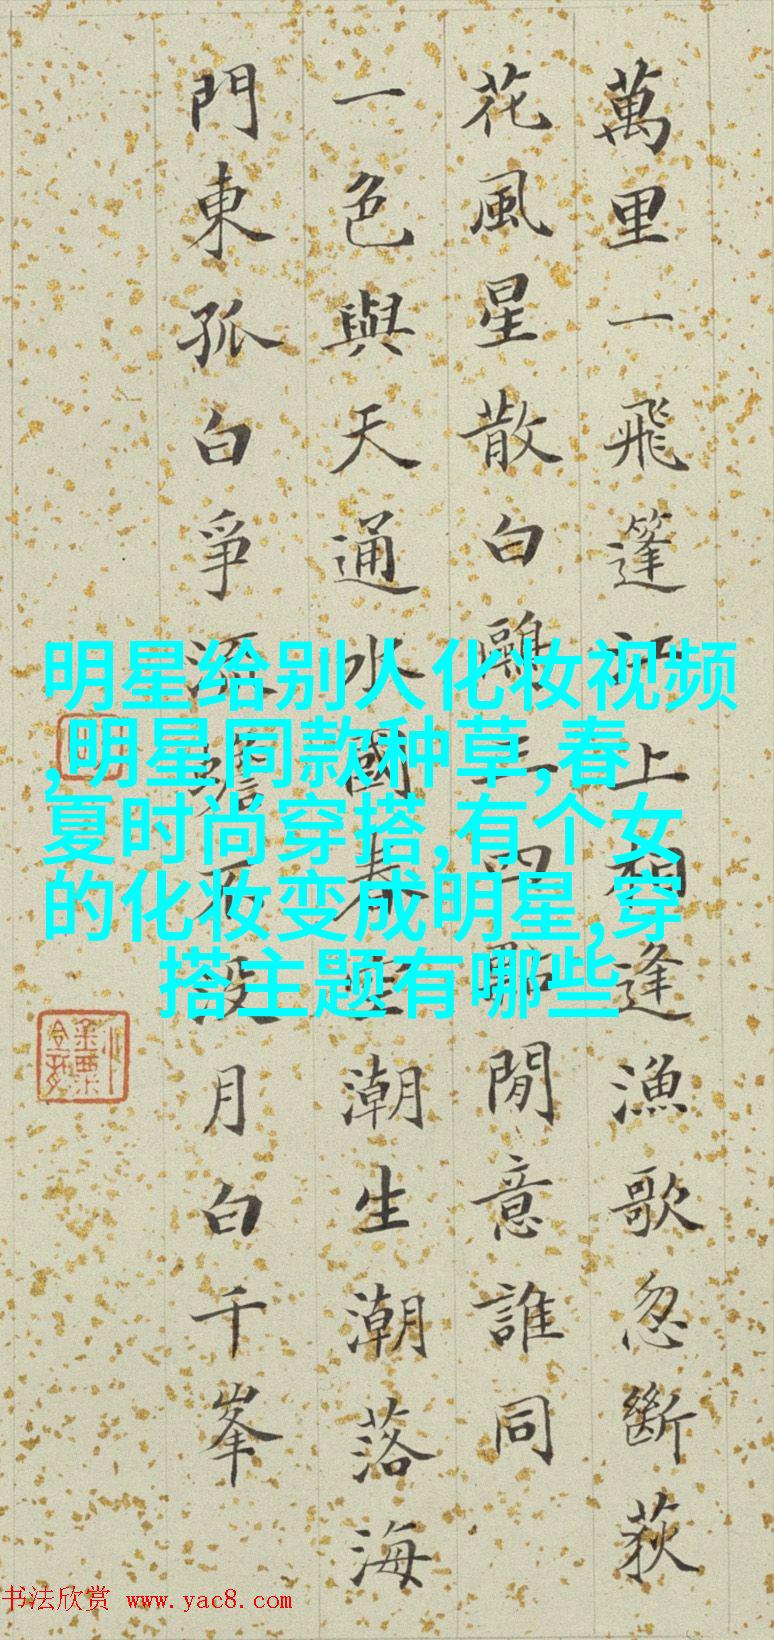 萬里一飛篷江上相逢漁歌忽斷荻
花風星散白鷗三四點閒意誰同
一色與天通水國春空潮生潮落海
門東孤白爭流蟾不沒月白千峯
明星给别人化妆视频
,明星同款种草,春
夏时尚穿搭,有个女
的化妆变成明星,穿
搭主题有哪些
书法欣赏 www.yac8.com